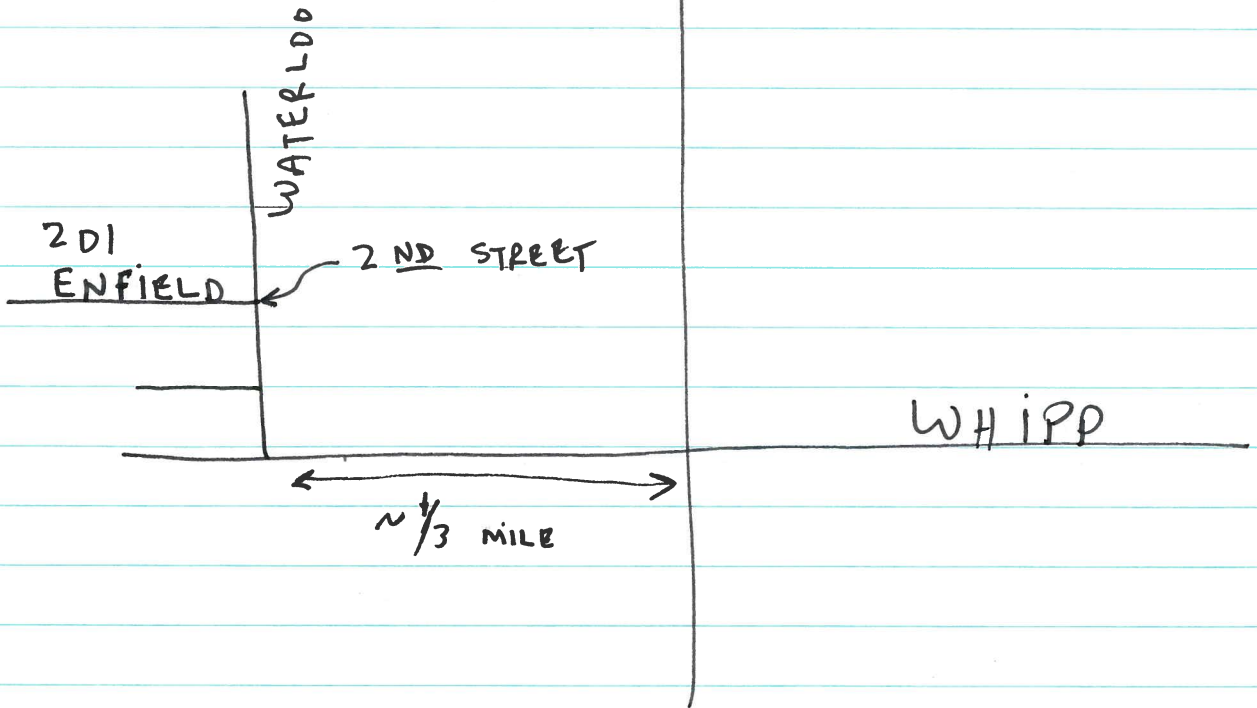 WATERLOO
201
ENFIELD
2ND STREET
WHIPP
~ 1/3 MILE